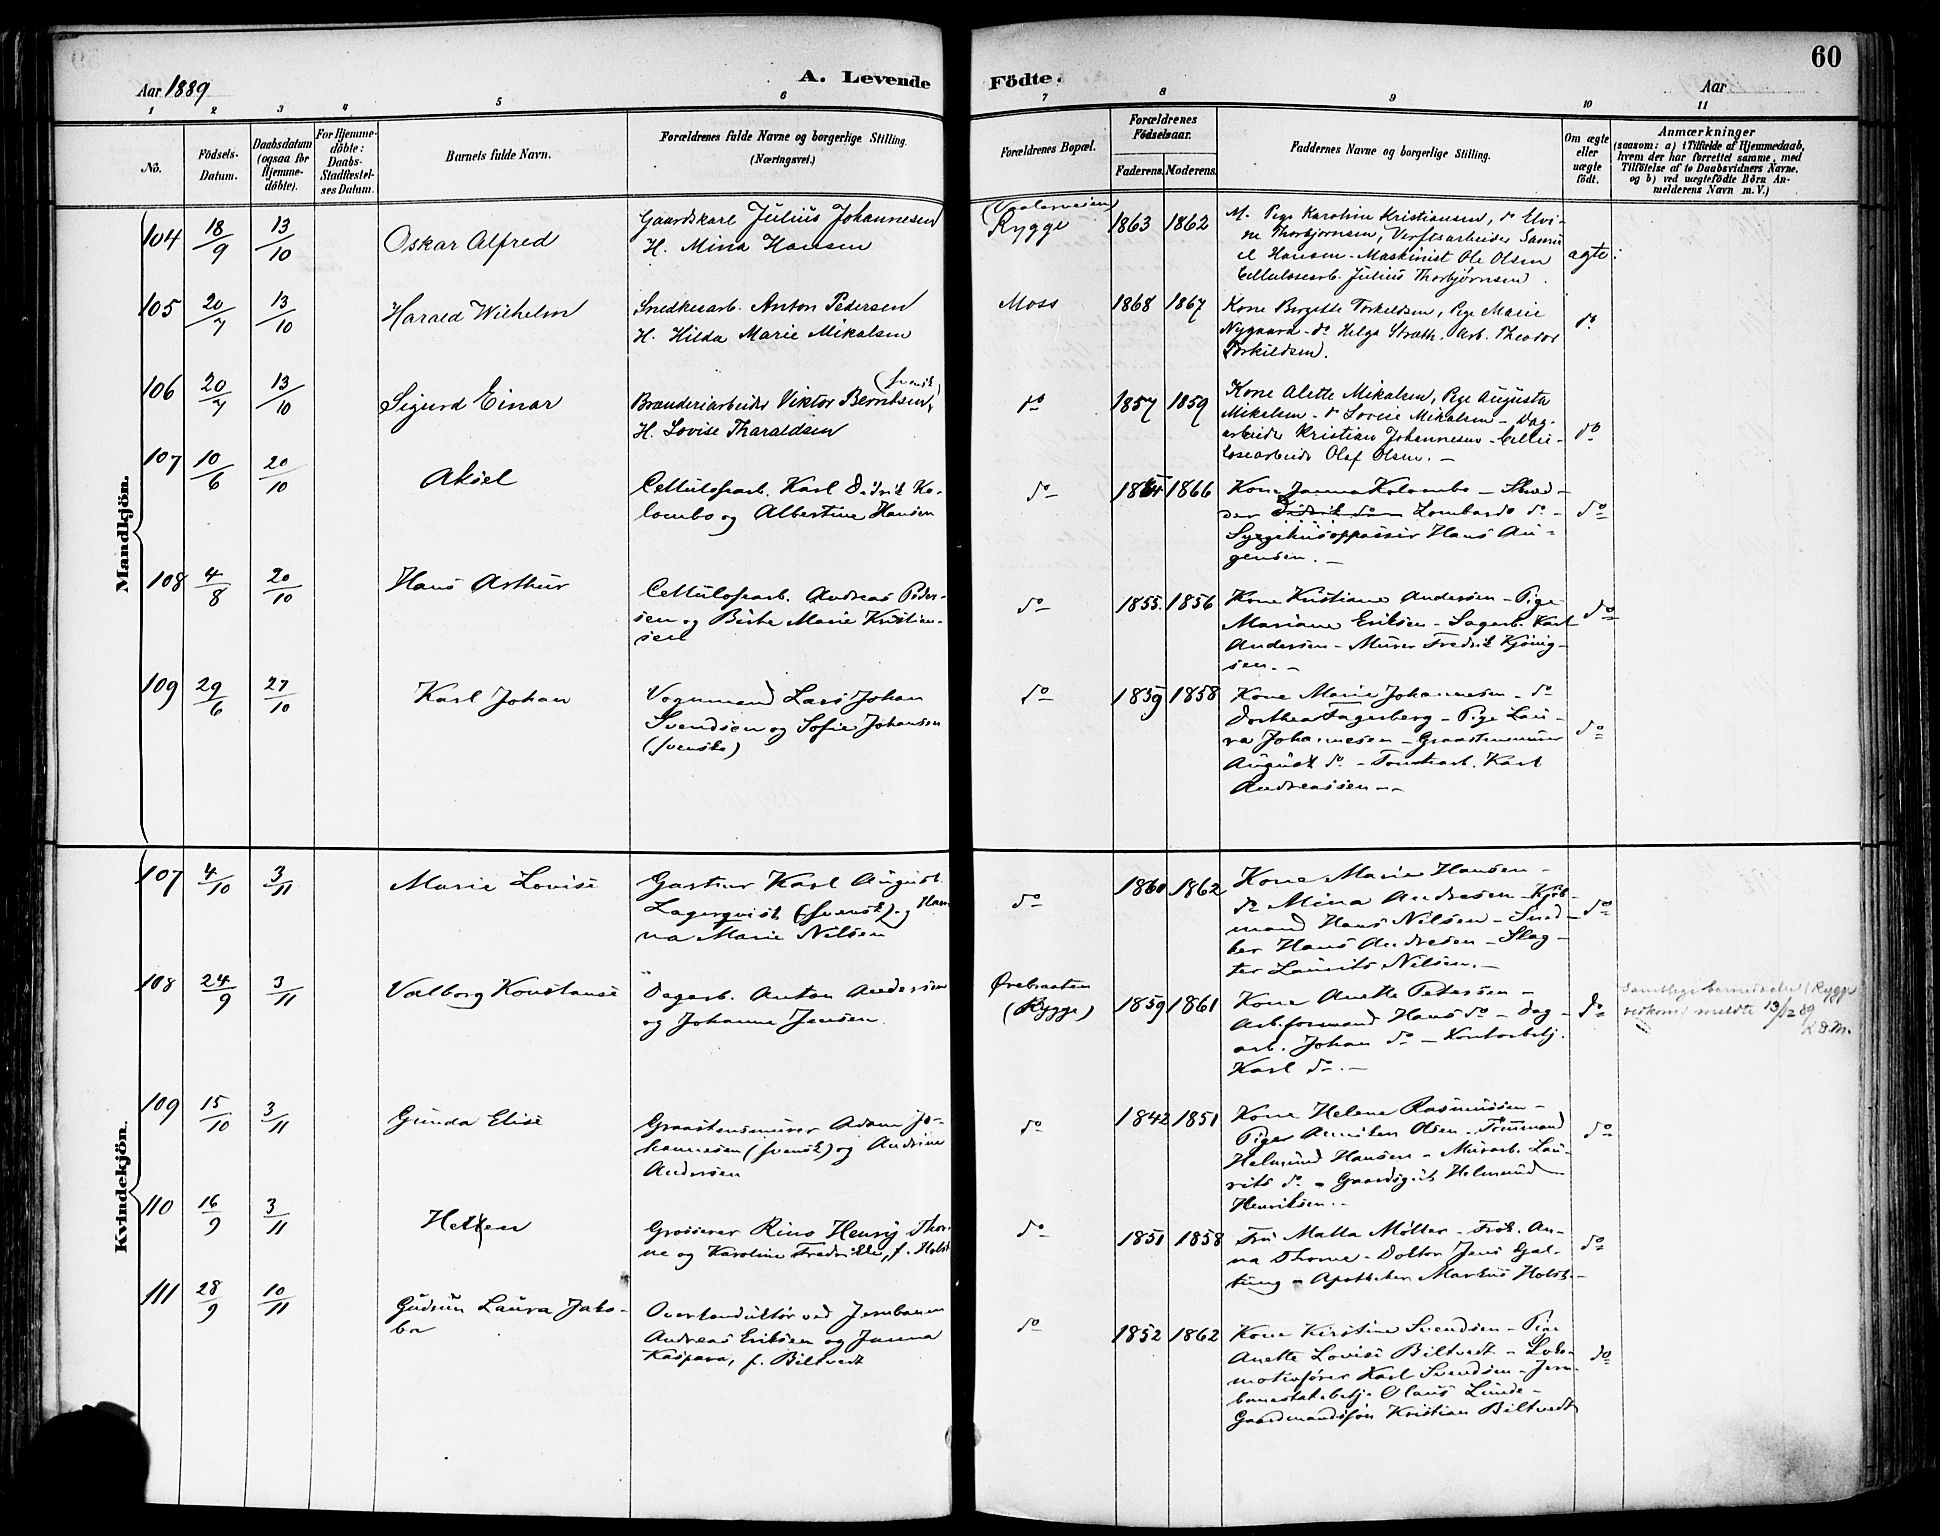 60
A. Levende Födte.
Aar 1889
Aar
1 2 3 4 5 6 7 8 9 10 11
No.
Födsels-Datum.
Daabsdatum (ogsaa for Hjemme-döbte).
For Hjemme-döbte: Daabs-Stadfæstel-ses Datum.
Barnets fulde Navn.
Forældrenes fulde Navne og borgerlige Stilling. (Næringsvei.)
Forældrenes Bopæl.
Forældrenes Födselsaar.
Faderens. Moderens.
Faddernes Navne og borgerlige Stilling.
Om ægte eller uægte födt.
Anmærkninger
(saasom: a) i Tilfælde af Hjemmedaab, hvem der har forrettet samme, med Tilföielse af to Daabsvidners Navne, og b) ved uægtefödte Börn An-melderens Navn m. V.)
Mandkjön.
104 18/9 13/10 Oskar Alfred
Gaardskarl Julius Johannesen
H. Mina Hansen
(Vaalerveien)
Rygge 1863 1862
M. Pige Karoline Kristiansen, do Elvi-
ne Thorbjørnsen, Verftsarbeider Samu
el Hansen - Maskinist Ole Olsen
Cellulosearb. Julius Thorbjørnsen.
ægte
105 20/7 13/10 Harald Wilhelm
Snedkerarb. Anton Pedersen
H. Hilda Marie Mikalsen
Moss 1868 1867
Kone Bergitte Torkildsen, Pige Marie
Nygaard - do Helga Stræth, Arb. Theodor
Torkildsen.
do
106 20/7 13/10 Sigurd Einar
(svensk)
Brænderiarbeider Viktor Berntsen,
H. Lovise Tharaldsen
do 1857 1859
Kone Alette Mikalsen, Pige Augusta
Mikalsen - do Lovise Mikalsen - Dag-
arbeider Kristian Johannesen - Cellu-
losearbeider Olaf Olsen. -
do
107 10/6 20/10 Aksel
Cellulosarb. Karl Didrik Ko-
lombo og Albertine Hansen
do 1864 1866
Kone Janna Kolombo - Skræd-
der Didrik do Lombardo do -
Sygehusopasser Hans Au-
gensen. -
do
108 4/8 20/10 Hans Arthur
Cellulosarb. Andreas Peder-
sen og Birte Marie Kristian-
sen
do 1855. 1856
Kone Kristiane Andersen - Pige
Mariane Eriksen - Sagarb. Karl
Andersen - Murer Fredrik Kjönig-
sen. -
do
109 29/6 27/10 Karl Johan
Vognmand Lars Johan
Svendsen og Sofie Johansen
(svenske)
do 1859 1858
Kone Marie Johannesen - do
Dorthea Fagerberg - Pige Lau-
ra Johannesen - Graastensmurer
August do - Tomtearb. Karl
Andreassen -
do
Kvindekjön.
107 4/10 3/11 Marie Lovise
Gartner Karl August
Lagerqvist (svensk) og Han
na Marie Nilsen
do 1860 1862
Kone Marie Hansen -
do Mina Andresen - Kjøb-
mand Hans Nilsen - Sned-
ker Hans Andresen - Slag-
ter Laurits Nilsen. -
do
108 24/9 3/11 Valborg Konstanse
Dagarb. Anton Andersen
og Johanne Jensen.
Ørebraaten
(Rygge) 1859 1861
Kone Anette Petersen -
Arb.formand Hans do - Dag-
arb. Johan do - Kontorbetj.
Karl do. -
do
Samtlige barnedaaber (Rygge
vedkom) meldte 13/12 89
K.D.M.
109 15/10 3/11 Gunda Elise
Graastensmurer Adam Jo-
hannesen (svensk) og Andrine
Andersen
do 1842 1851
Kone Helene Rasmussen -
Pige Anniken Olsen - Tömmermand
Helmund Hansen - Murarb. Lau-
rits do - Gaardsgut Helmund
Henriksen. -
do
110 16/9 3/11 Hellen
Grosserer Rino Henrij Thor
ne og Karoline Fredrikke, f. Holst
do 1851 1858
Fru Malla Møller - Frøk. An-
na Thorne - Doktor Jens Gal-
tung - Apotheker Markus Holst. -
do
111 28/9 10/11 Gudrun Laura Jako-
ba
Overkonduktör ved Jernbanen
Andreas Eriksen og Janna
Kaspara, f. Biltvedt
do 1852 1862
Kone Kirstine Svendsen - Pige
Anette Lovise Biltvedt - Loko-
motivfører Karl Svendsen - Jern-
banestabetj. Olaus Linde -
Gaardmandssøn Kristian Biltvedt
do